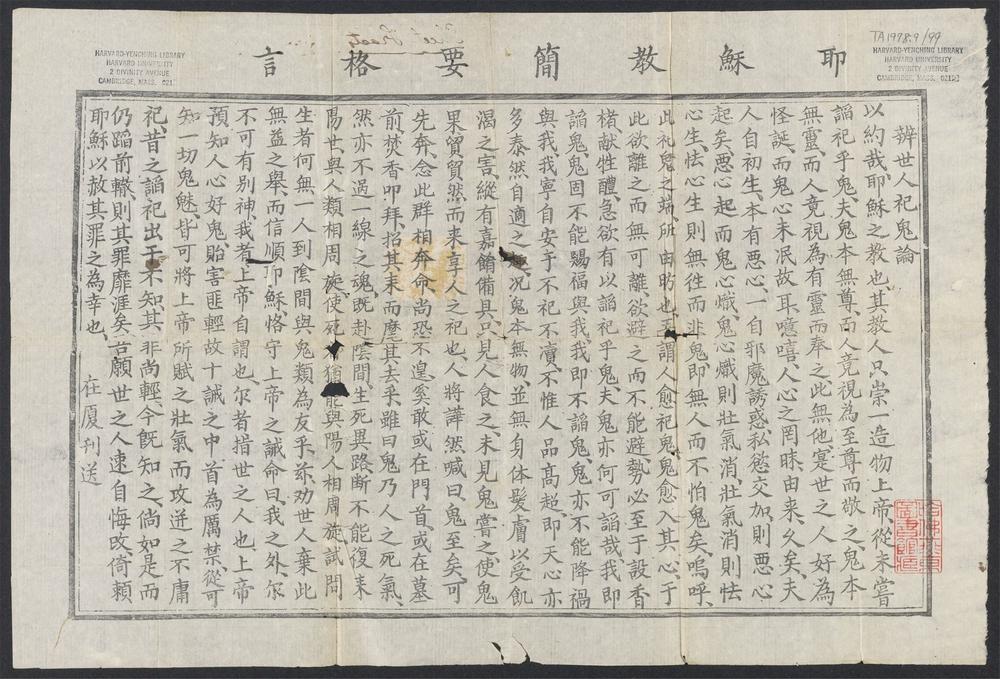 TA1978.9/99
HARVARD-YENCHING LIBRARY
HARVARD UNIVERSITY
2 DIVINITY AVENUE
CAMBRIDGE, MASS.
HARVARD-YENCHING LIBRARY
HARVARD UNIVERSITY
2 DIVINITY AVENUE
CAMBRIDGE, MASS.
耶穌教簡要格言
辨世人祀鬼論
以約哉、耶穌之教也、其教人只崇一造物上帝、從未嘗
謟祀乎鬼、夫鬼本無尊、而人竟視為至尊而敬之、鬼本
無靈、而人竟視為有靈而奉之、此無他、寔世之人好為
怪誕、而鬼心未泯故耳、噫嘻、人心之罔昧、由來久矣、夫
人自初生、本有惡心、一自邪魔誘惑、私慾交加、則惡心
起矣、惡心起而鬼心熾、鬼心熾則壯氣消、壯氣消則怯
心生、怯心生則無往而非鬼、即無人而不怕鬼矣、嗚呼、
此祀鬼之端、所由昉也、謂人愈祀鬼、鬼愈入其心、于
此欲離之而無可離、欲避之而不能避、勢必至于設香
楮、獻牲醴、急欲有以謟祀乎鬼、夫鬼亦何可謟哉、我即
謟鬼、鬼固不能賜福與我、我即不謟鬼、鬼亦不能降禍
與我、我寧自安于不祀不瀆、不惟人品高超、即天心亦
多泰然自適之、况鬼本無物、並無身体髮膚以受飢
渴之害、縱有嘉餚備具、只見人食之、未見鬼嘗之、使鬼
果貿貿然而來享人之祀也、人將譁然喊曰、鬼至矣、可
先奔、念此群相奔命、尚恐不遑、奚敢或在門首、或在墓
前、焚香叩拜、招其來而麾其去乎、雖曰鬼乃人之死氣、
然亦不過一線之魂、既赴陰間、生死異路、斷不能復來
陽世、與人類相周旋、使死猶能與陽人相周旋、試問
生者何無一人到陰間與鬼類為友乎、茲劝世人棄此
無益之舉、而信順耶穌、恪守上帝之誡命曰、我之外、尔
不可有別神、我者、上帝自謂也、尔者、指世之人也、上帝
預知人心好鬼、貽害匪輕、故十誡之中、首為厲禁、從可
知一切鬼魅、皆可將上帝所賦之壯氣而攻迸之、不庸
祀、昔之謟祀、出于不知、其非尚輕、今既知之、倘如是而
仍蹈前轍、則其罪靡涯矣、吾願世之人速自悔改、倚賴
耶穌以赦其罪之為幸也、
在厦刊送